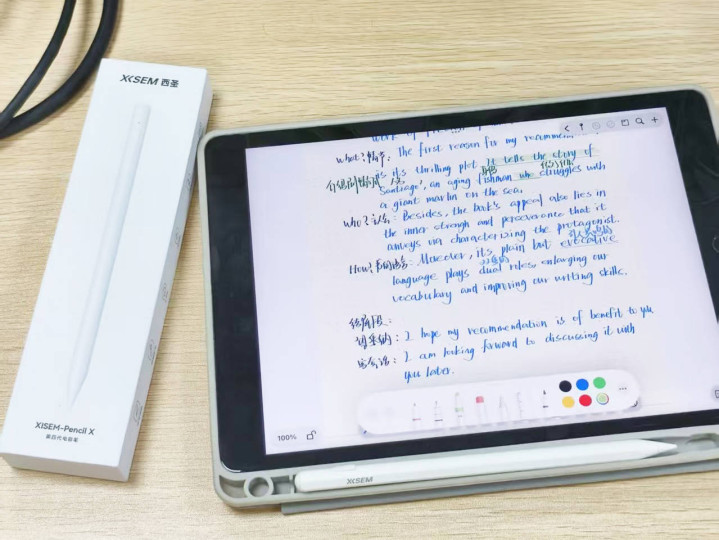 XISEM 西圣
XISEM-Pencil X
第四代电容笔
work of
What?情节: The first reason for my recommen
is its thrilling plot. It tells the story of
Santiago', an aging fishman who struggles with
a giant marlin on the sea.
Who? : Besides, the book's appeal also lies in
the inner strengh and perseverance that it
conveys via characterizing the protagonist.
How? : Moreover, its plain but evocative
language plays dual roles, enlarging our
vocabulary and improving our writing skills.
结尾段:
I hope my recommendation is of benefit to you
I am looking forward to discussing it with
you later.
100%
XISEM